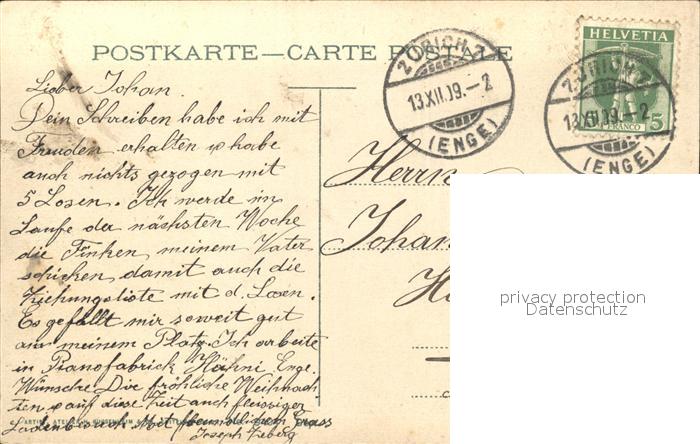 POSTKARTE — CARTE POSTALE
ZÜRICH 2
13.XII.09.-2
(ENGE)
HELVETIA
FRANCO 5
ZÜRICH 2
13.XII.09.-2
(ENGE)
Lieber Johan.
Dein Schreiben habe ich mit
Freuden erhalten u habe
auch nichts gezogen mit
5 Losen. Ich werde im
Laufe der nächsten Woche
die Finken meinem Vater
schicken damit auch die
Ziehungsliste mit d. Losen.
Es gefällt mir soweit gut
an meinem Platz. Ich arbeite
in Pianofabrick Hähni Enge.
Wünsche Dir fröhliche Weihnach
ten u auf diese Zeit auch fleissiger
Ladenbesuch. Mit freundlichem Gruss
Joseph
Herrn
Johan
privacy protection
Datenschutz